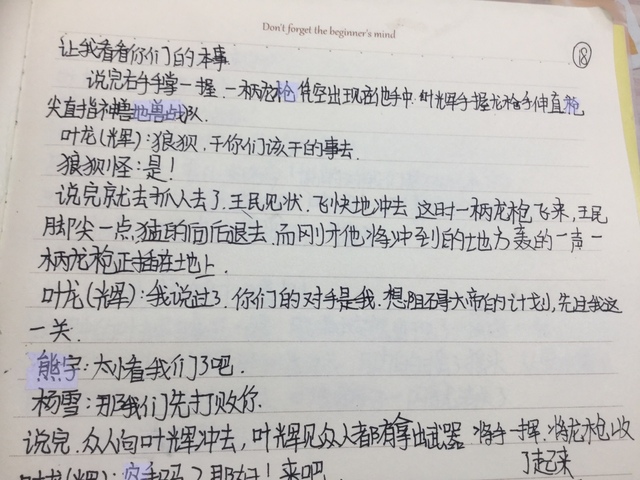 Don't forget the beginner's mind
⑱
让我看看你们的本事
说完右手手掌一握.一柄龙枪凭空出现在他手中.叶辉手握龙枪手伸直枪
尖直指神兽地兽战队.
叶龙(辉):狼狈.干你们该干的事去.
狼狈怪:是!
说完就去抓人去了.王民见状.飞快地冲去 这时一柄龙枪飞来,王民
脚尖一点,猛的向后退去.而刚才他将冲到的地方轰的一声一
柄龙枪正插在地上.
叶龙(辉):我说过了.你们的对手是我.想阻碍大帝的计划,先过我这
一关.
熊宇:太小看我们了吧.
杨雪:那我们先打败你.
说完.众人向叶辉冲去,叶辉见众人都有拿出武器 将手一挥.将龙枪收
了起来
叶龙(辉):空手吗?那好!来吧